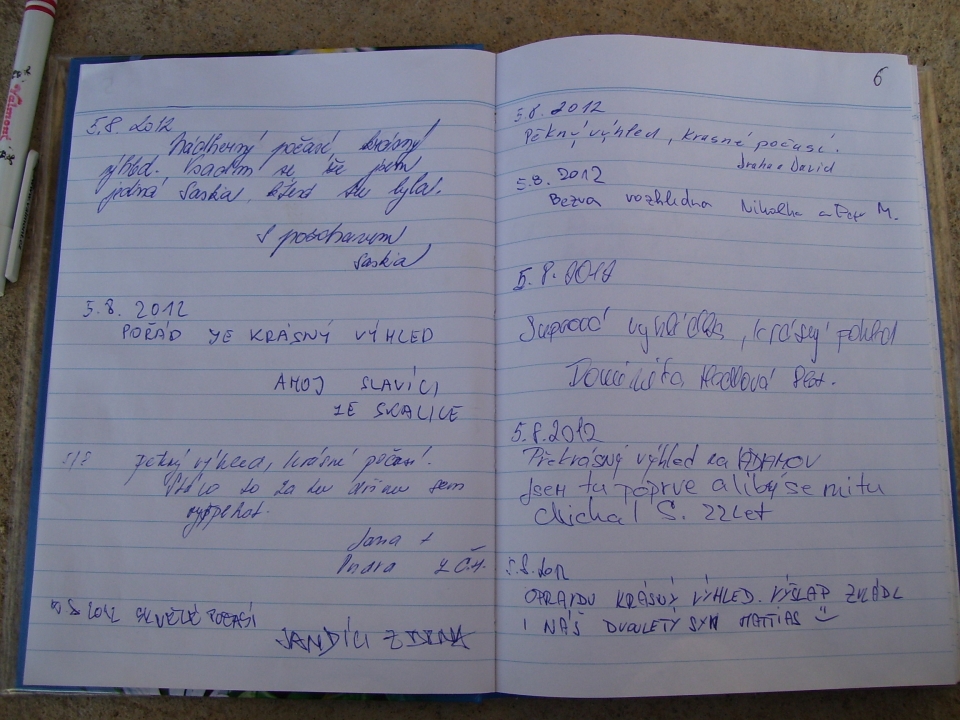 Valmont
5.8. 2012
Nádherný počasí, krásný
výhled. Vsadím se že jsem
jediná Saskia, která tu byla.
S pozdravem
Saskia
5.8. 2012
POŘÁD JE KRÁSNÝ VÝHLED
AHOJ SLAVÍCI
ZE SKALICE
5/8 pěkný výhled, krásné počasí.
Stálo to za tu dřinu sem
vyšplhat.
Jana +
z Č.H.
5.8 2012 SKVĚLÉ POČASÍ
JANDÍCI Z BRNA
6
5.8. 2012
Pěkný výhled, krasné počasí.
Draha a David
5.8. 2012
Bezva rozhledna Nikolka a Petr M.
5.8.2012
Suprová vyhlídka, krásný pohled
Dominika
5.8.2012
Překrásný výhled na ADAMOV
Jsem tu poprve a libý se mi tu
Michal S. 22 Let
5.8.2012
OPRAVDU KRÁSNÝ VÝHLED. VÝŠLAP ZVLÁDL
I NÁŠ DVOULETÝ SYN MATTIAS